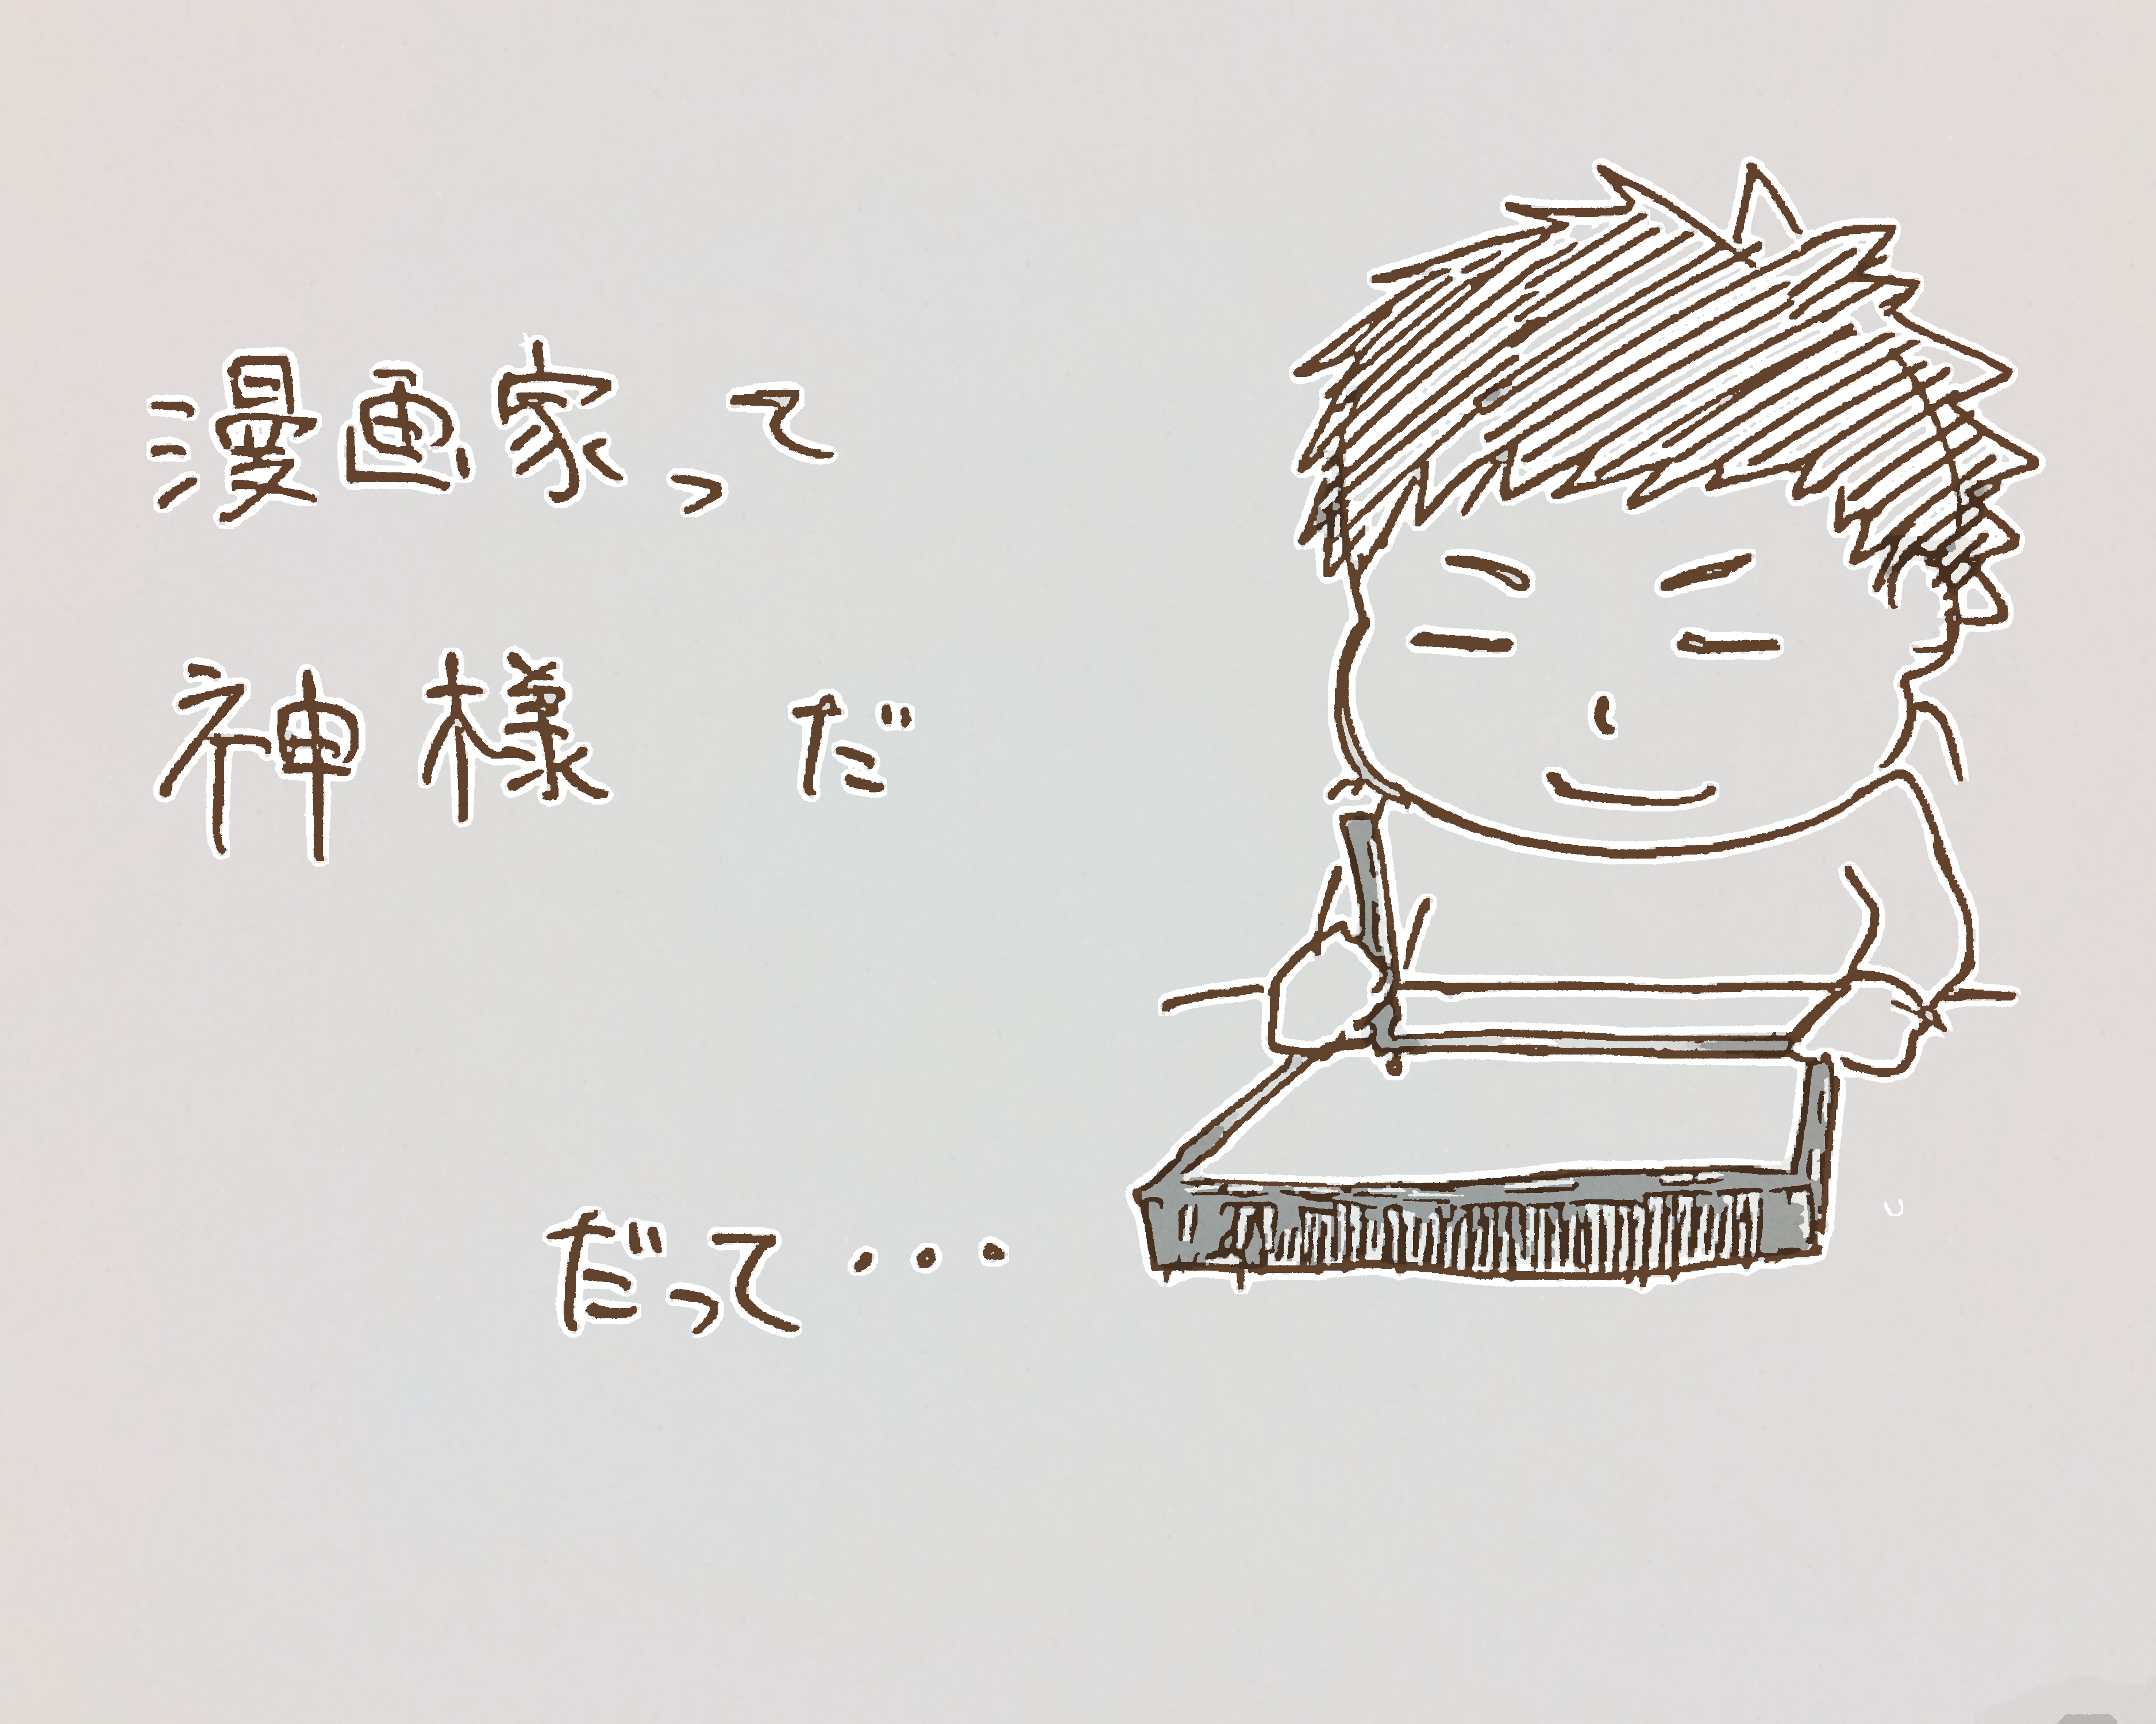 漫画家って
神様 だ
だって・・・